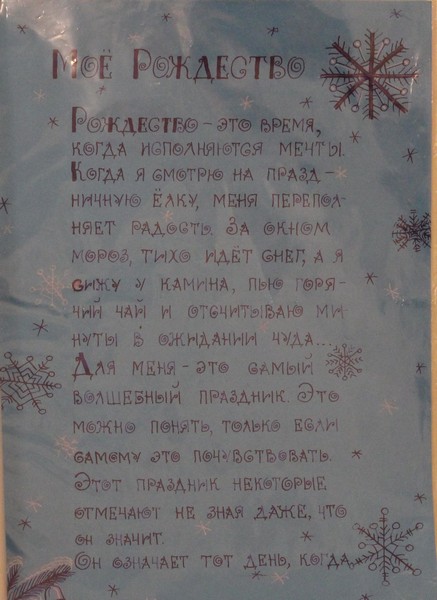 Моё Рождество
Рождество – это время,
когда исполняются мечты.
Когда я смотрю на празд-
ничную ёлку, меня перепол-
няет радость. За окном
мороз, тихо идёт снег, а я
сижу у камина, пью горя-
чий чай и отсчитываю ми-
нуты в ожидании чуда...
Для меня – это самый
волшебный праздник. Это
можно понять, только если
самому это почувствовать.
Этот праздник некоторые
отмечают не зная даже, что
он значит.
Он означает тот день, когда